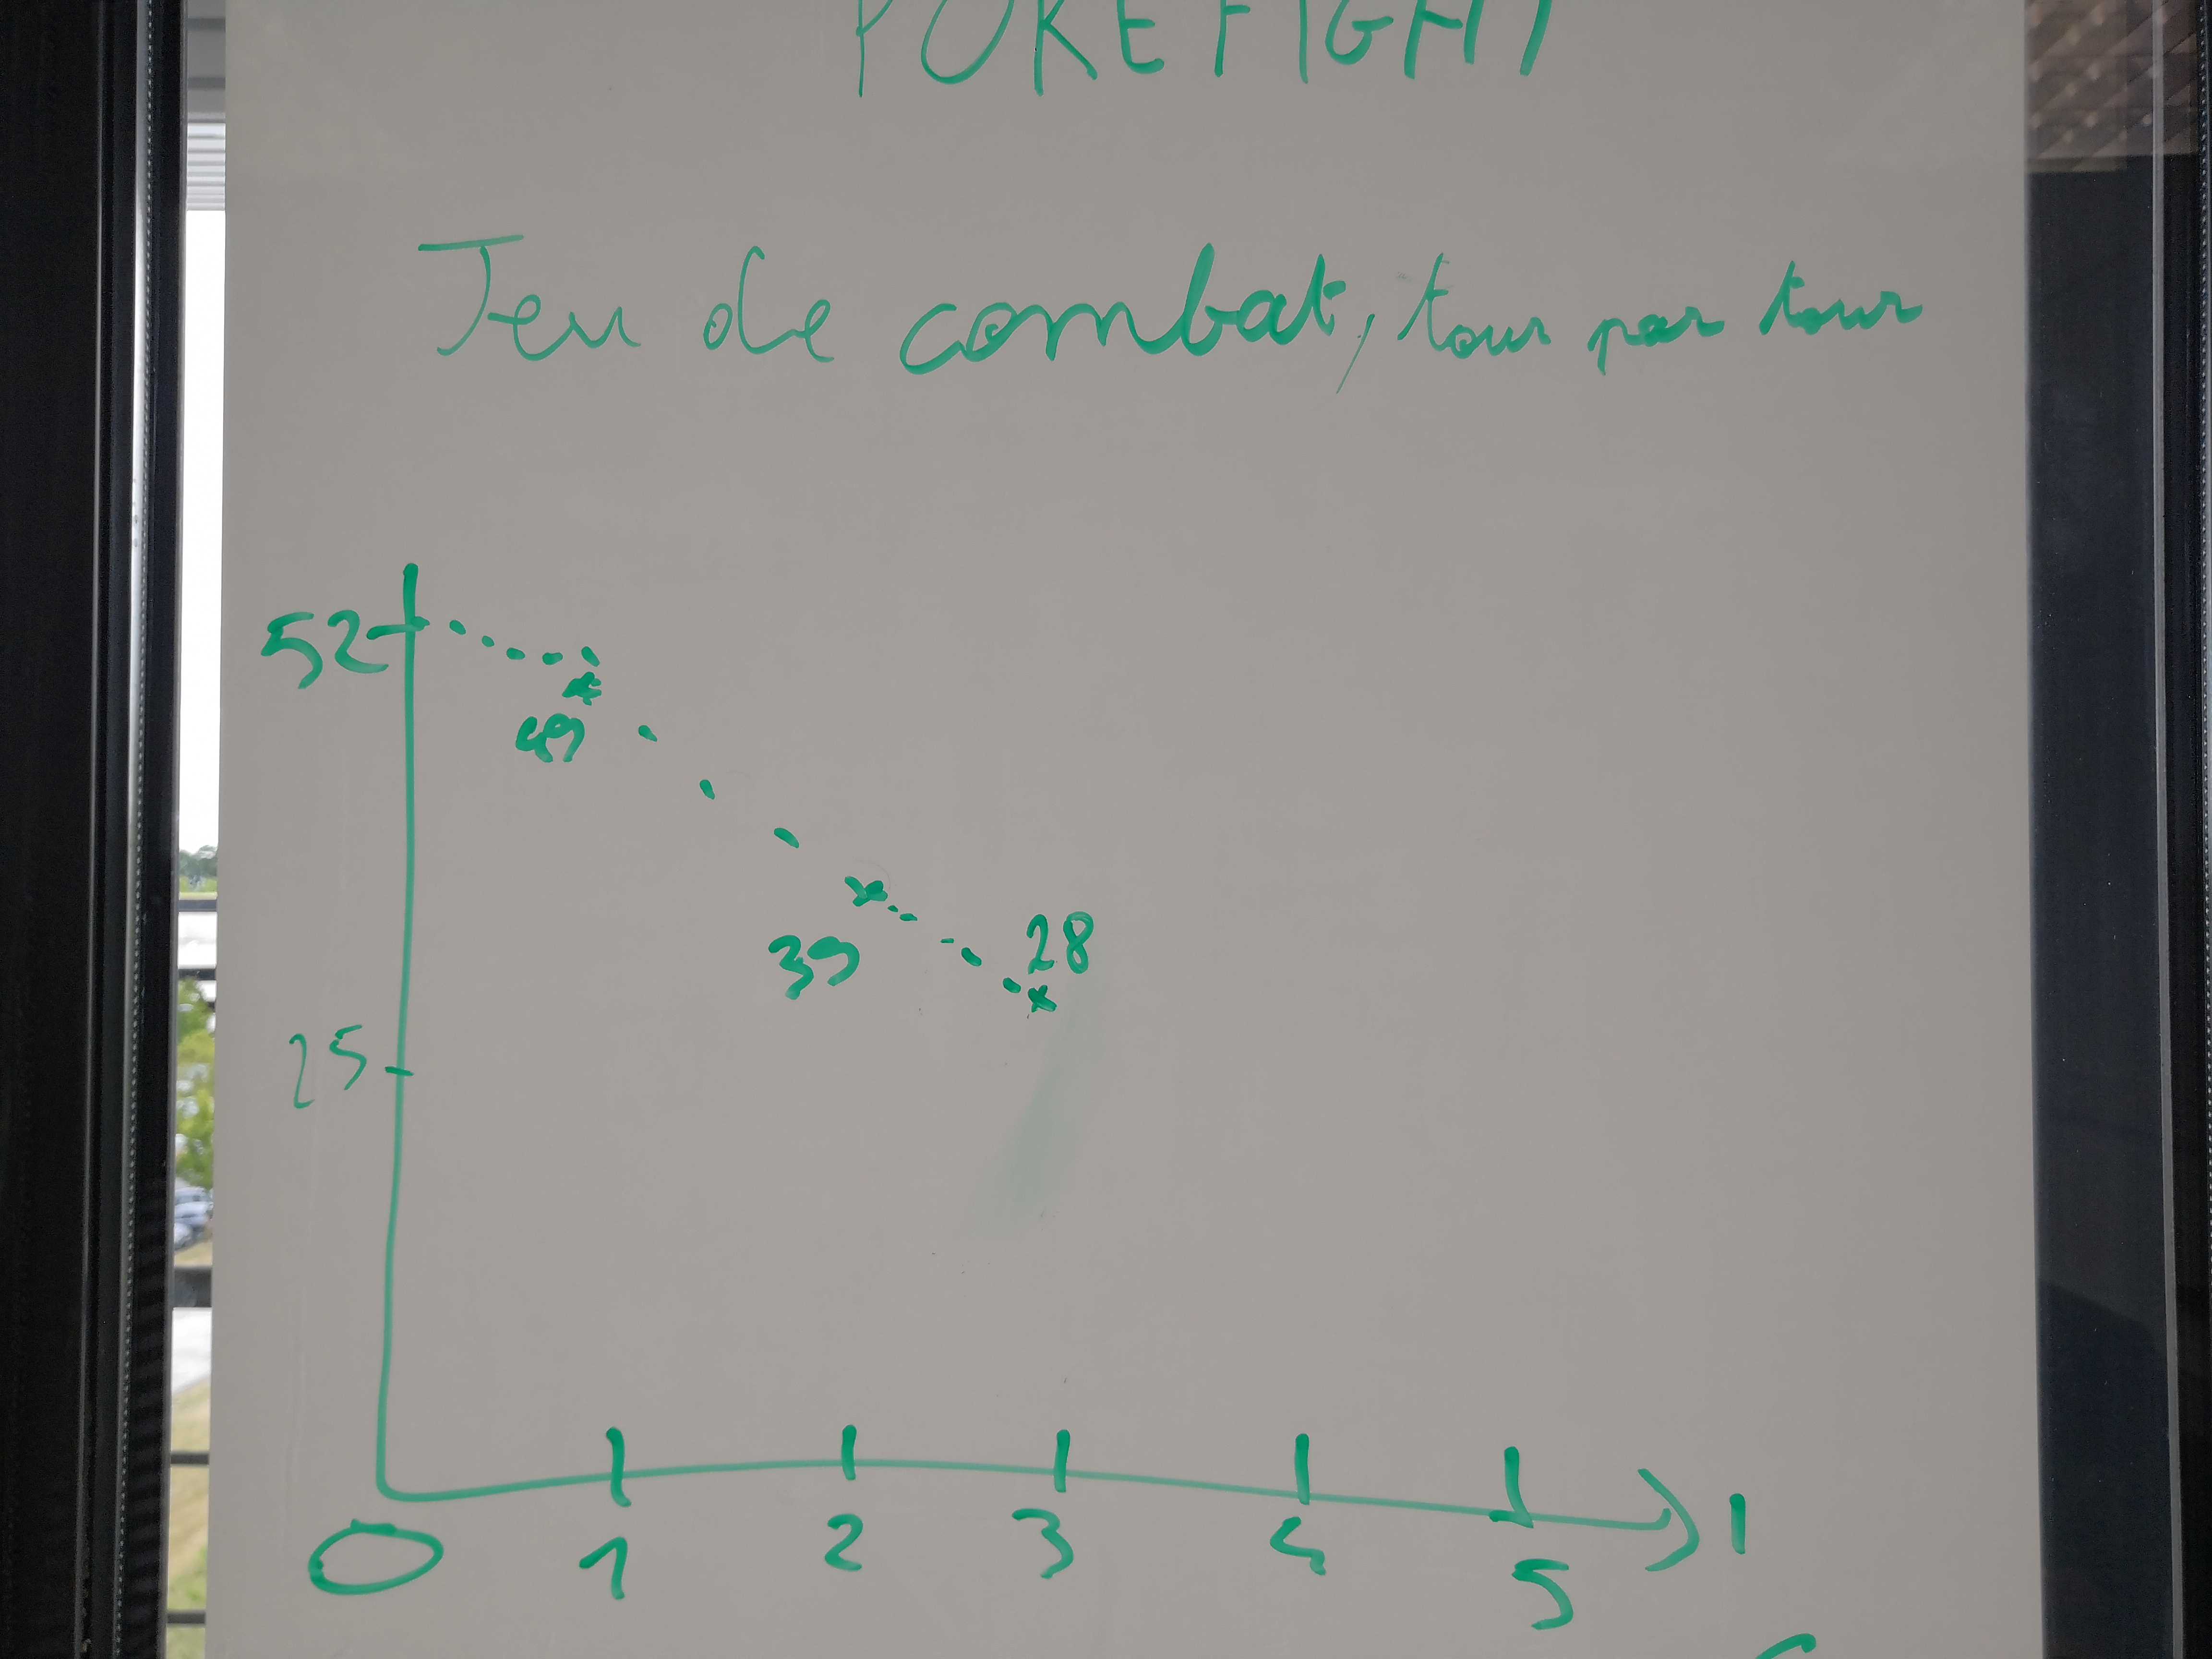 POKEFIGHT
Jeu de combat, tour par tour
52
49
39
28
25
0 1 2 3 4 5